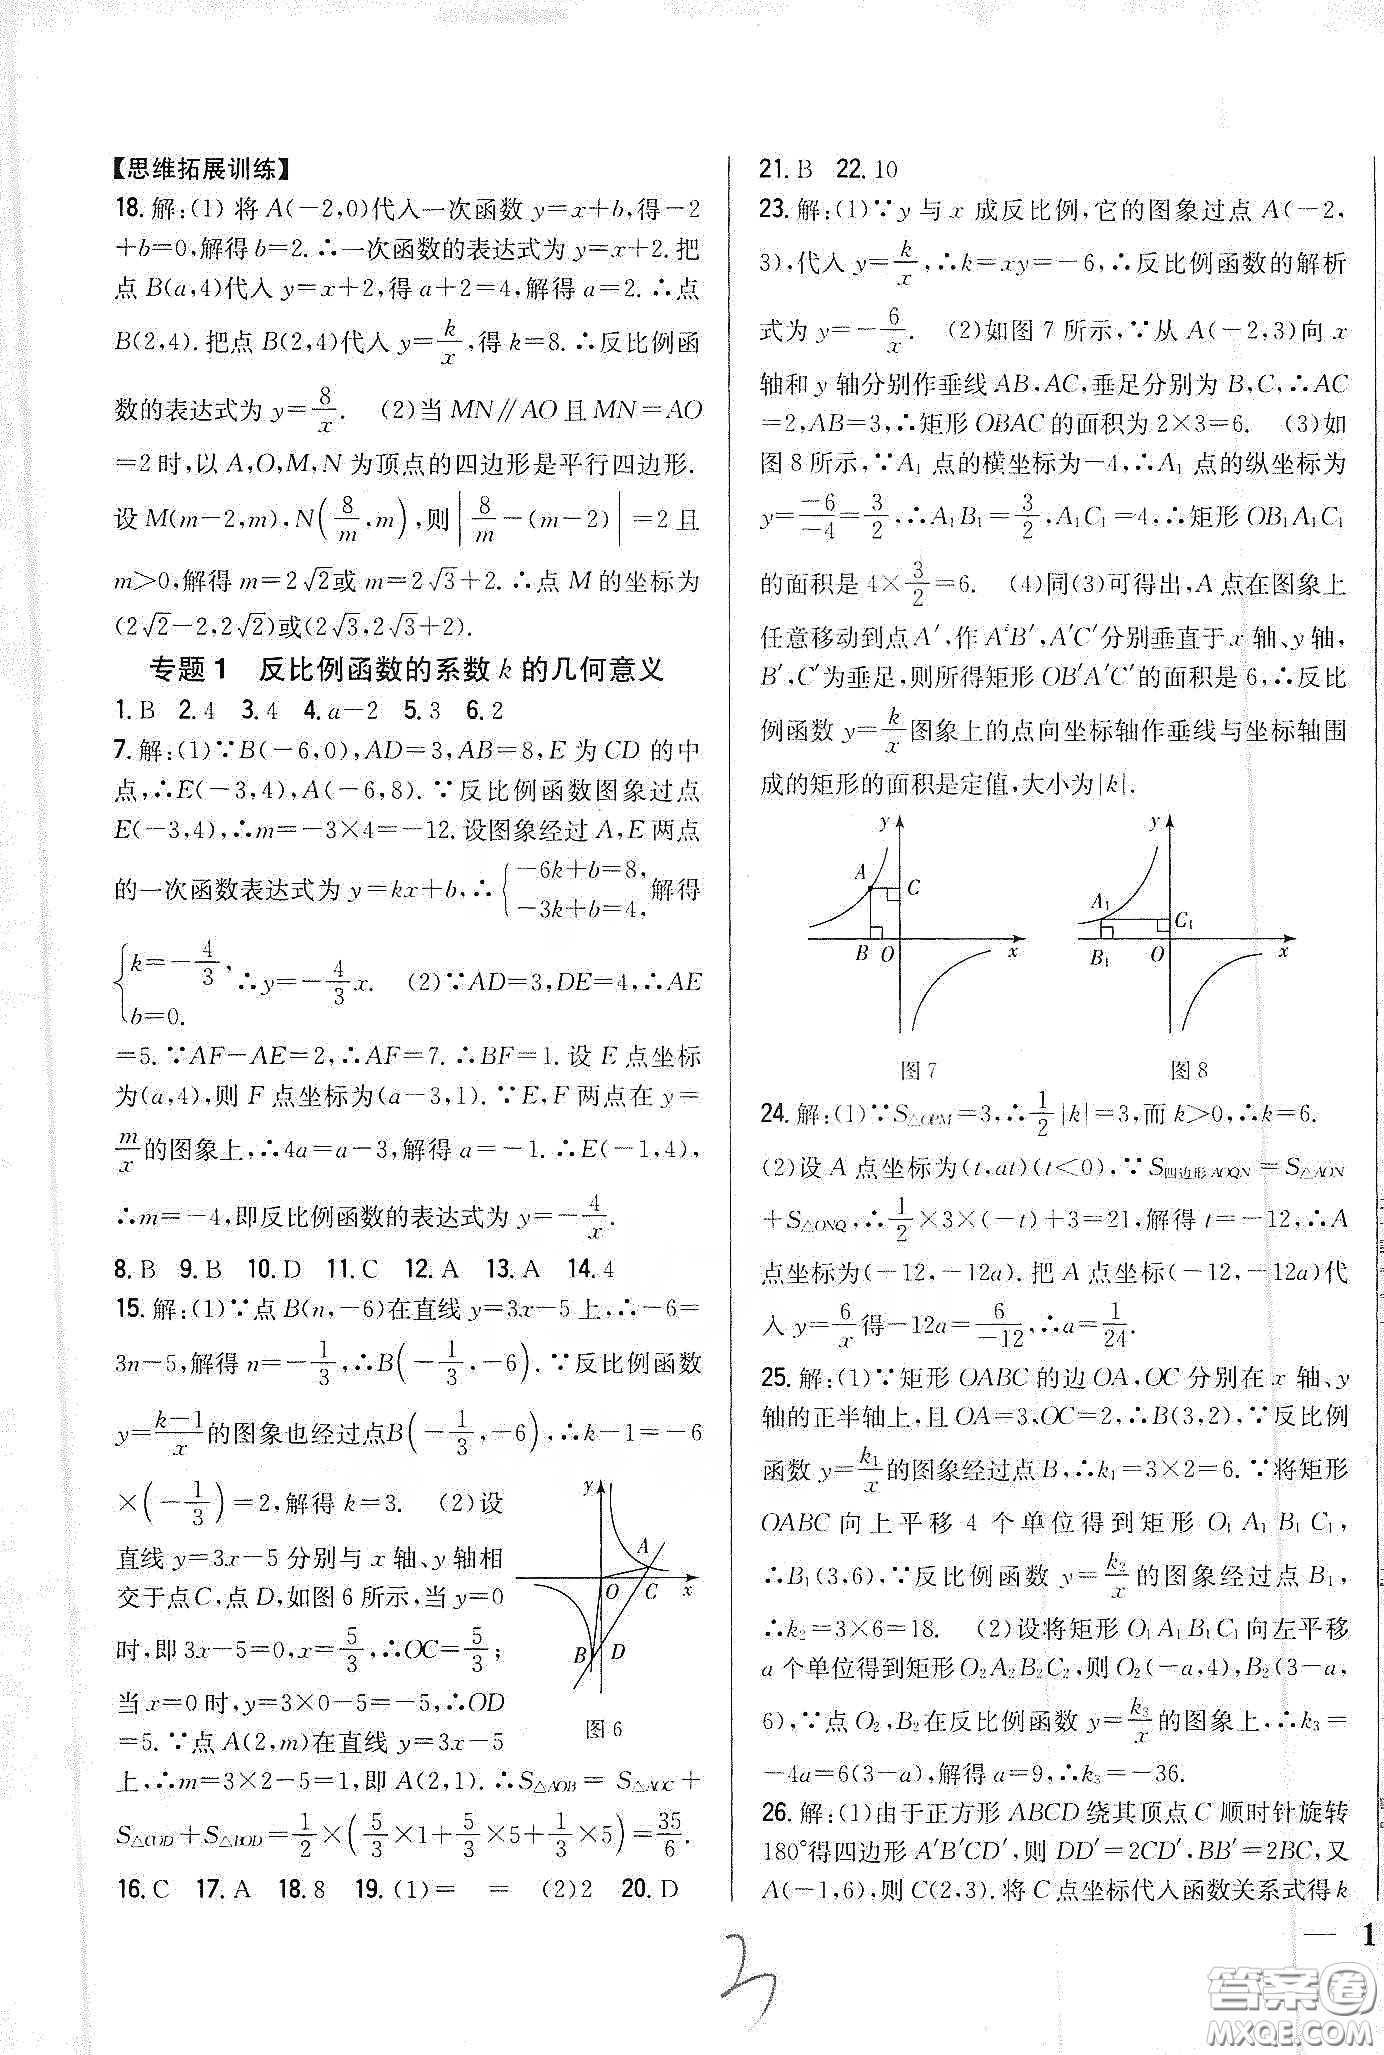 【思维拓展训练】
18.解:(1) 将 A(-2,0)代入一次函数 y=x+b,得-2
+b=0,解得 b=2.∴一次函数的表达式为 y=x+2.把
点 B(a,4)代入 y=x+2,得 a+2=4,解得 a=2.∴点
B(2,4).把点 B(2,4)代入 y=k/x,得 k=8.∴反比例函
数的表达式为 y=8/x. (2)当 MN∥AO 且 MN=AO
=2时,以 A,O,M,N 为顶点的四边形是平行四边形.
设 M(m-2,m),N(8/m,m),则|8/m-(m-2)|=2且
m>0,解得 m=2√2或 m=2√3+2.∴点 M 的坐标为
(2√2-2,2√2)或(2√3,2√3+2).
专题1 反比例函数的系数 k 的几何意义
1.B 2.4 3.4 4.a-2 5.3 6.2
7.解:(1)∵B(-6,0),AD=3,AB=8,E 为 CD 的中
点,∴E(-3,4),A(-6,8).∵反比例函数图象过点
E(-3,4),∴m=-3×4=-12.设图象经过 A,E 两点
的一次函数表达式为 y=kx+b,∴{-6k+b=8, -3k+b=4,解得
{k=-4/3, b=0. ∴y=-4/3x. (2)∵AD=3,DE=4,∴AE
=5.∵AF-AE=2,∴AF=7.∴BF=1.设 E 点坐标
为(a,4),则 F 点坐标为(a-3,1).∵E,F 两点在 y=
m/x的图象上,∴4a=a-3,解得 a=-1.∴E(-1,4),
∴m=-4,即反比例函数的表达式为 y=-4/x.
8.B 9.B 10.D 11.C 12.A 13.A 14.4
15.解:(1)∵点 B(n,-6)在直线 y=3x-5上,∴-6=
3n-5,解得 n=-1/3,∴B(-1/3,-6).∵反比例函数
y=k-1/x的图象也经过点B(-1/3,-6),∴k-1=-6
×(-1/3)=2,解得 k=3. (2)设
直线 y=3x-5分别与 x 轴、y轴相
交于点C,点 D,如图 6,当 y=0
时,即 3x-5=0,x=5/3,∴OC=5/3;
当 x=0时,y=3×0-5=-5,∴OD
=5.∵点 A(2,m)在直线 y=3x-5
上,∴m=3×2-5=1,即 A(2,1).∴S△AOB = S△AOC+
S△COD+S△BOD=1/2×(5/3×1+5/3×5+1/3×5)=35/6.
y
A
O
C
x
B
D
图6
16.C 17.A 18.8 19.(1)= = (2)2 20.D
21.B 22.10
23.解:(1)∵y 与 x 成反比例,它的图象过点 A(-2,
3),代入 y=k/x,∴k=xy=-6,∴反比例函数的解析
式为 y=-6/x. (2)如图7所示,∵从 A(-2,3)向 x
轴和 y 轴分别作垂线 AB,AC,垂足分别为 B,C,∴AC
=2,AB=3,∴矩形 OBAC 的面积为2×3=6. (3)如
图8所示,∵A1 点的横坐标为-4,∴A1 点的纵坐标为
y=-6/-4=3/2,∴A1B1=3/2,A1C1=4,∴矩形 OB1A1C1
的面积是4×3/2=6. (4)同(3)可得出,A 点在图象上
任意移动到点 A′,作 A′B′,A′C′分别垂直于 x 轴、y轴,
B′,C′为垂足,则所得矩形 OB′A′C′的面积是 6,∴反比
例函数 y=k/x图象上的点向坐标轴作垂线与坐标轴围
成的矩形的面积是定值,大小为|k|.
y
A
C
B
O
x
图7
y
A1
C1
B1
O
x
图8
24.解:(1)∵S△OPM=3,∴1/2|k|=3,而 k>0,∴k=6.
(2)设 A 点坐标为(t,at)(t<0),∵S四边形AOQN=S△AON
+S△ONQ,∴1/2×3×(-t)+3=21,解得 t=-12,∴A
点坐标为(-12,-12a).把 A 点坐标(-12,-12a)代
入 y=6/x得-12a=6/-12,∴a=1/24.
25.解:(1)∵矩形 OABC 的边 OA,OC 分别在 x 轴、y
轴的正半轴上,且 OA=3、OC=2,∴B(3,2),∵反比例
函数 y=k1/x的图象经过点 B,∴k1=3×2=6.∵将矩形
OABC 向上平移 4 个单位得到矩形 O1A1B1C1,
∴B1(3,6),∵反比例函数 y=k2/x的图象经过点 B1,
∴k2=3×6=18. (2)设将矩形 O1A1B1C1 向左平移
a 个单位得到矩形 O2A2B2C2,则 O2(-a,4),B2(3-a,
6),∵点 O2,B2 在反比例函数 y=k3/x的图象上,∴k3=
-4a=6(3-a),解得 a=9,∴k3=-36.
26.解:(1)由于正方形 ABCD 绕其顶点 C 顺时针旋转
180°得四边形 A′B′CD′,则 DD′=2CD′,BB′=2BC,又
A(-1,6),则 C(2,3).将 C 点坐标代入函数关系式得 k
— 1
3
答案卷
MXQE.COM